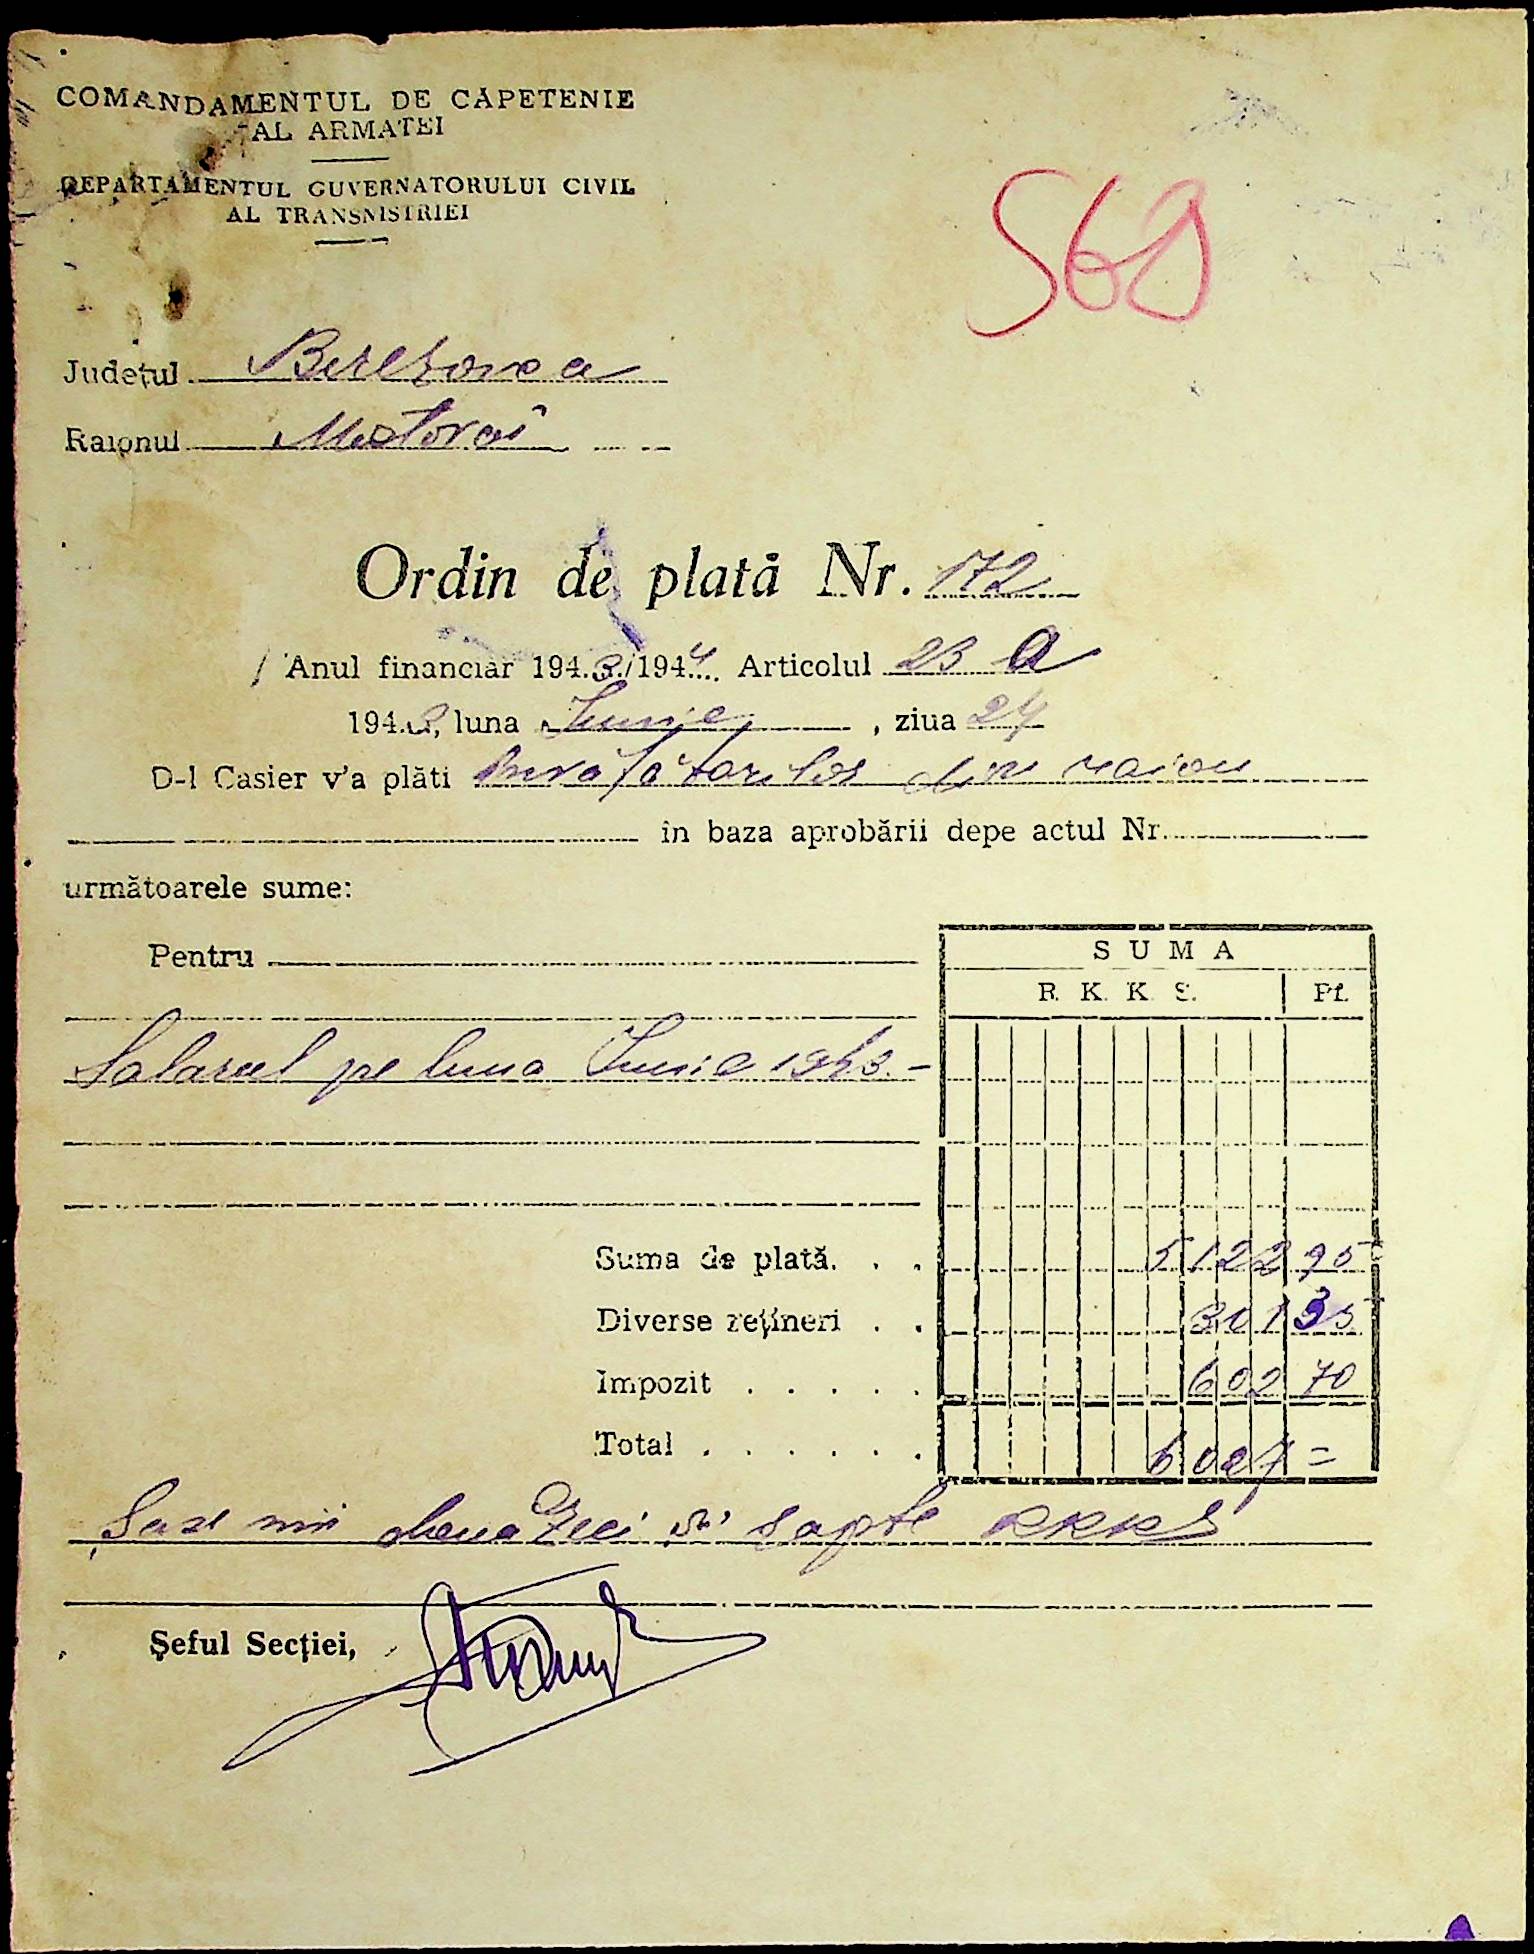 COMANDAMENTUL DE CĂPETENIE
AL ARMATEI
DEPARTAMENTUL GUVERNATORULUI CIVIL
AL TRANSNISTRIEI
569
Județul Berezovca
Raionul Mostovoi
Ordin de plată Nr. 172
Anul financiar 1943/1944 Articolul 23 a
1943, luna Iunie, ziua 24
D-l Casier v'a plăti Învățătorilor din raion
în baza aprobării depe actul Nr.
următoarele sume:
Pentru
SUMA
R. K. K. S. Pf.
Salariul pe luna Iunie 1943.-
Suma de plată. . . 5122 95
Diverse rețineri . . 301 35
Impozit . . . . . 602 70
Total . . . . . . 6027 =
Șase mii douăzeci și șapte RKKS
Șeful Secției,